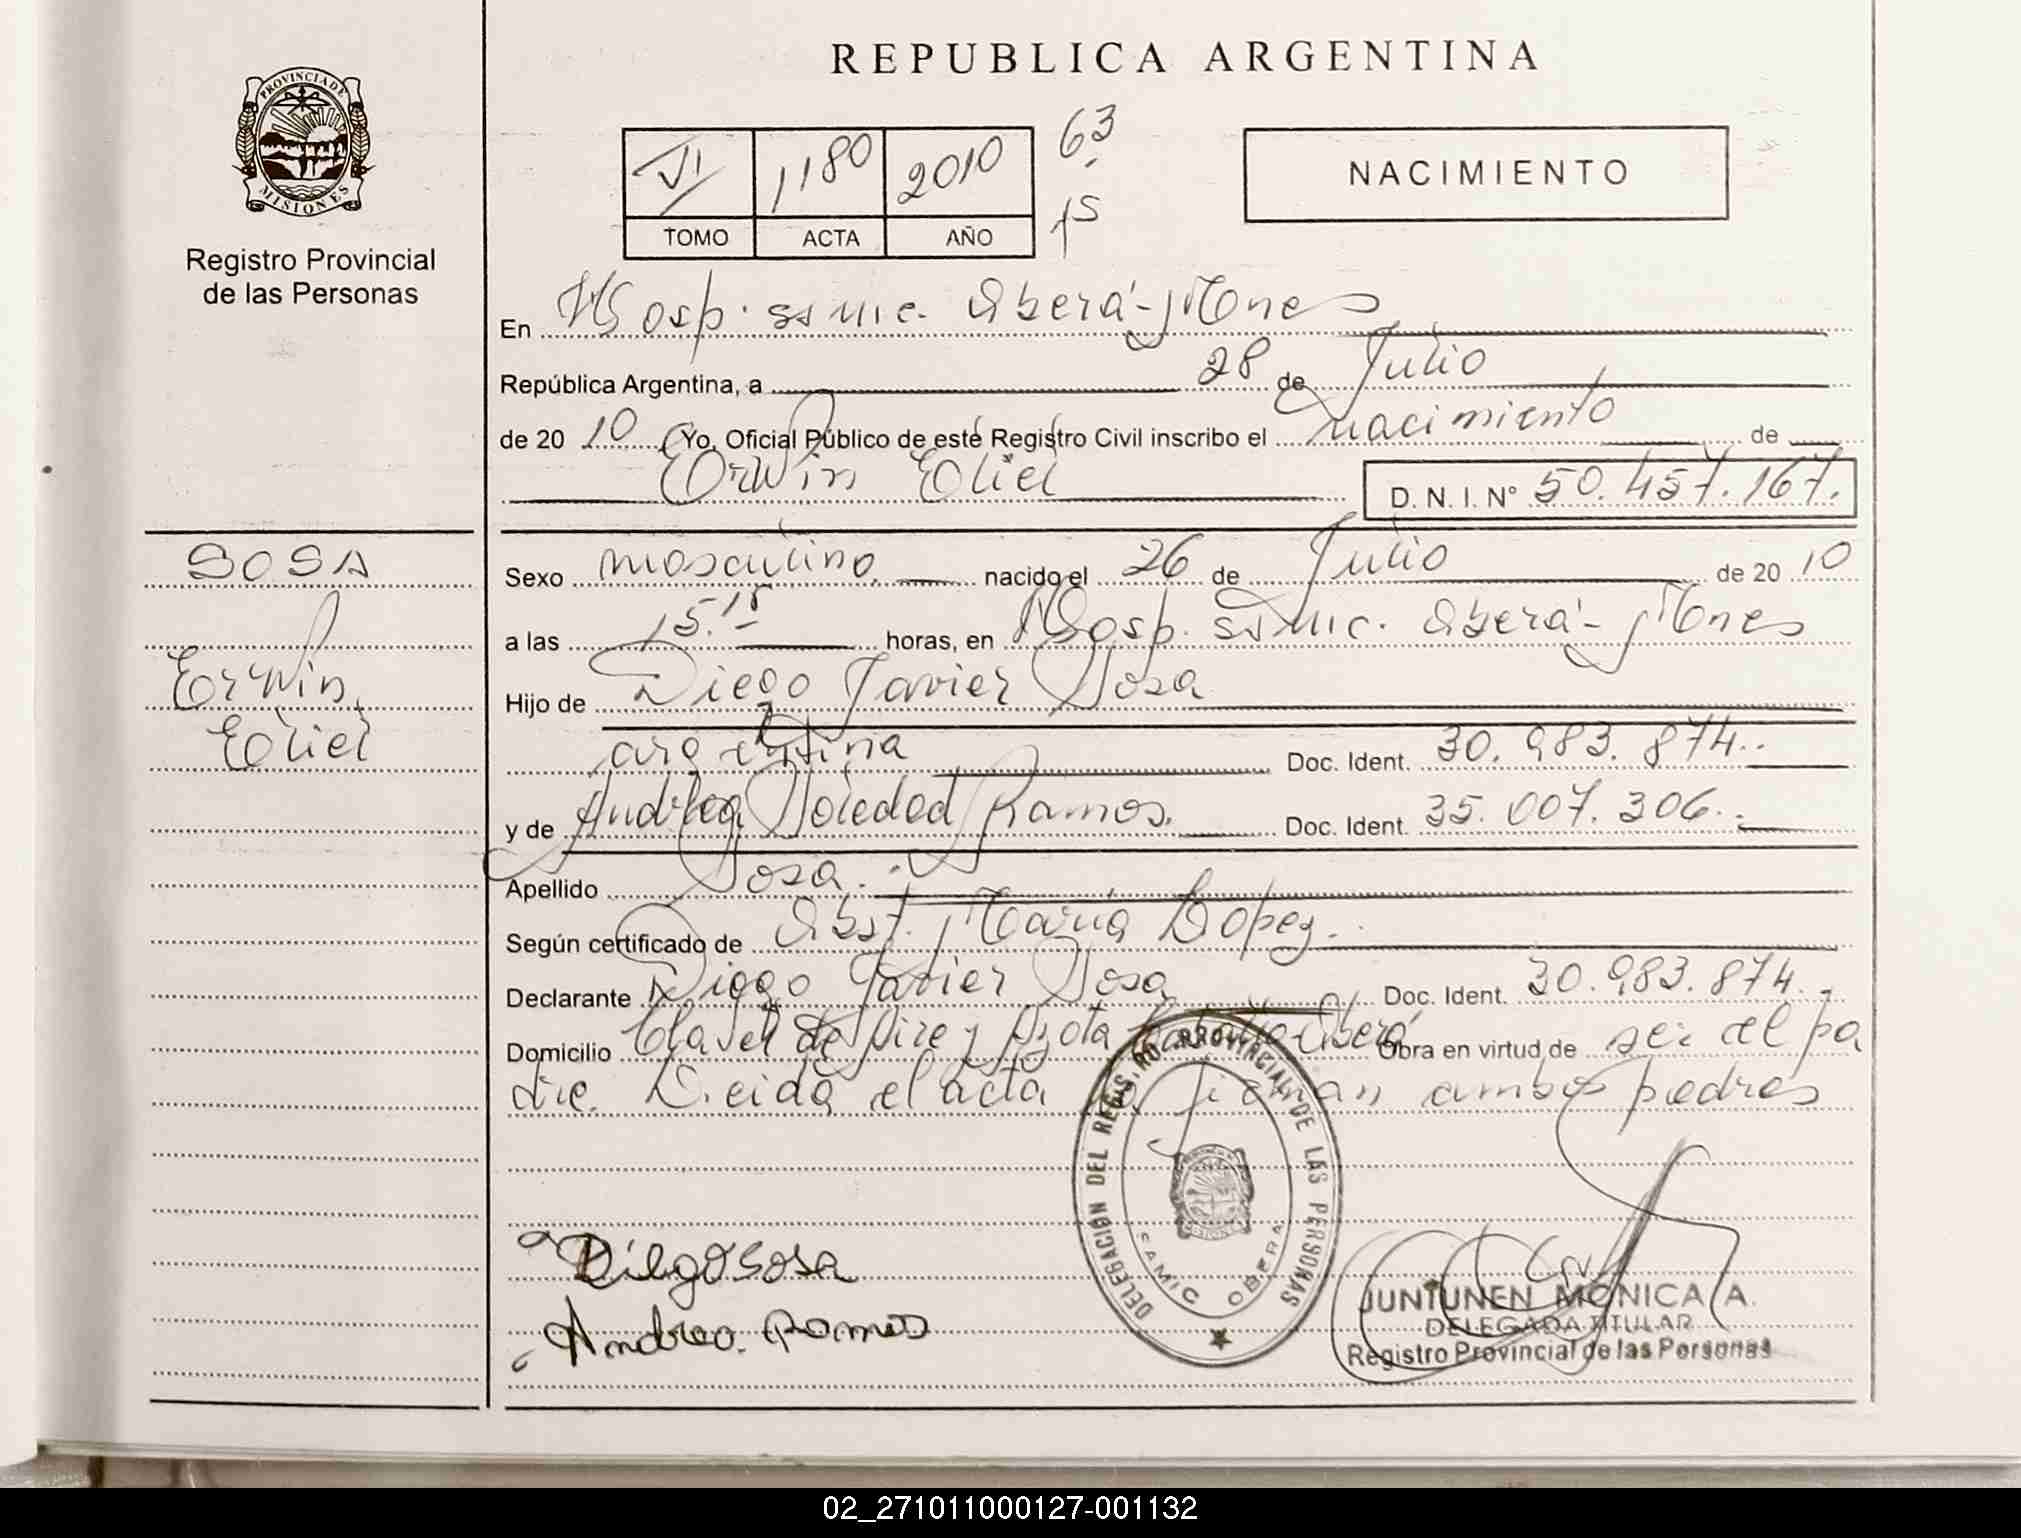 REPUBLICA ARGENTINA
PROVINCIA DE
MISIONES
Registro Provincial
de las Personas
VI 1180 2010 63
15
TOMO ACTA AÑO
NACIMIENTO
En Hosp. ss mic. Oberá - Mones
República Argentina, a 28 de Julio
de 20 10 Yo, Oficial Público de este Registro Civil inscribo el nacimiento de
Erwin Eliel D. N. I. N° 50.457.167.
SOSA
Erwin
Eliel
Sexo masculino nacido el 26 de Julio de 20 10
a las 15.15 horas, en Hosp. ss mic. Oberá - Mones
Hijo de Diego Javier Sosa
argentina Doc. Ident. 30.983.874.
y de Andrea Soledad Ramos. Doc. Ident. 35.007.306.
Apellido Sosa.
Según certificado de Obst. María Lopez.
Declarante Diego Javier Sosa Doc. Ident. 30.983.874.
Domicilio Clavel de Aire y Oberá Obra en virtud de ser el pa
dre. Leida el acta la firman ambos padres
DELEGACIÓN DEL REGISTRO PROVINCIAL DE LAS PERSONAS
SAMIC OBERA
Diego Sosa
Andrea Ramos
JUNTUNEN MONICA A.
DELEGADA TITULAR
Registro Provincial de las Personas
02_271011000127-001132